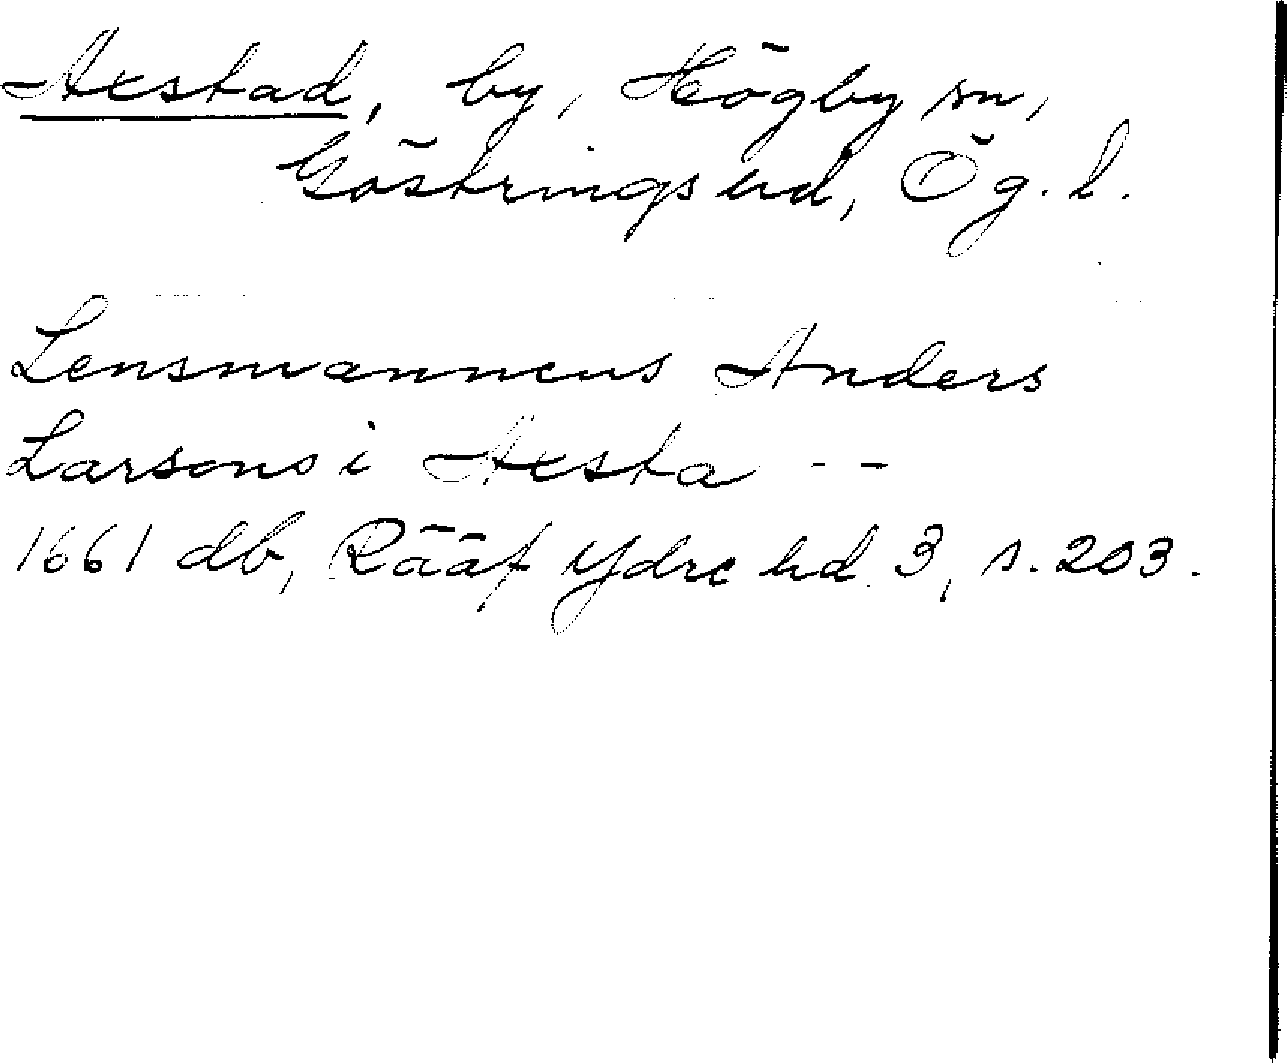 Axstad, by, Högby sn,
Göstrings hd, Ög. l.
Lensmannens Anders
Larsons i Axsta - -
1661 db, Rääf Ydre hd 3, s. 203.